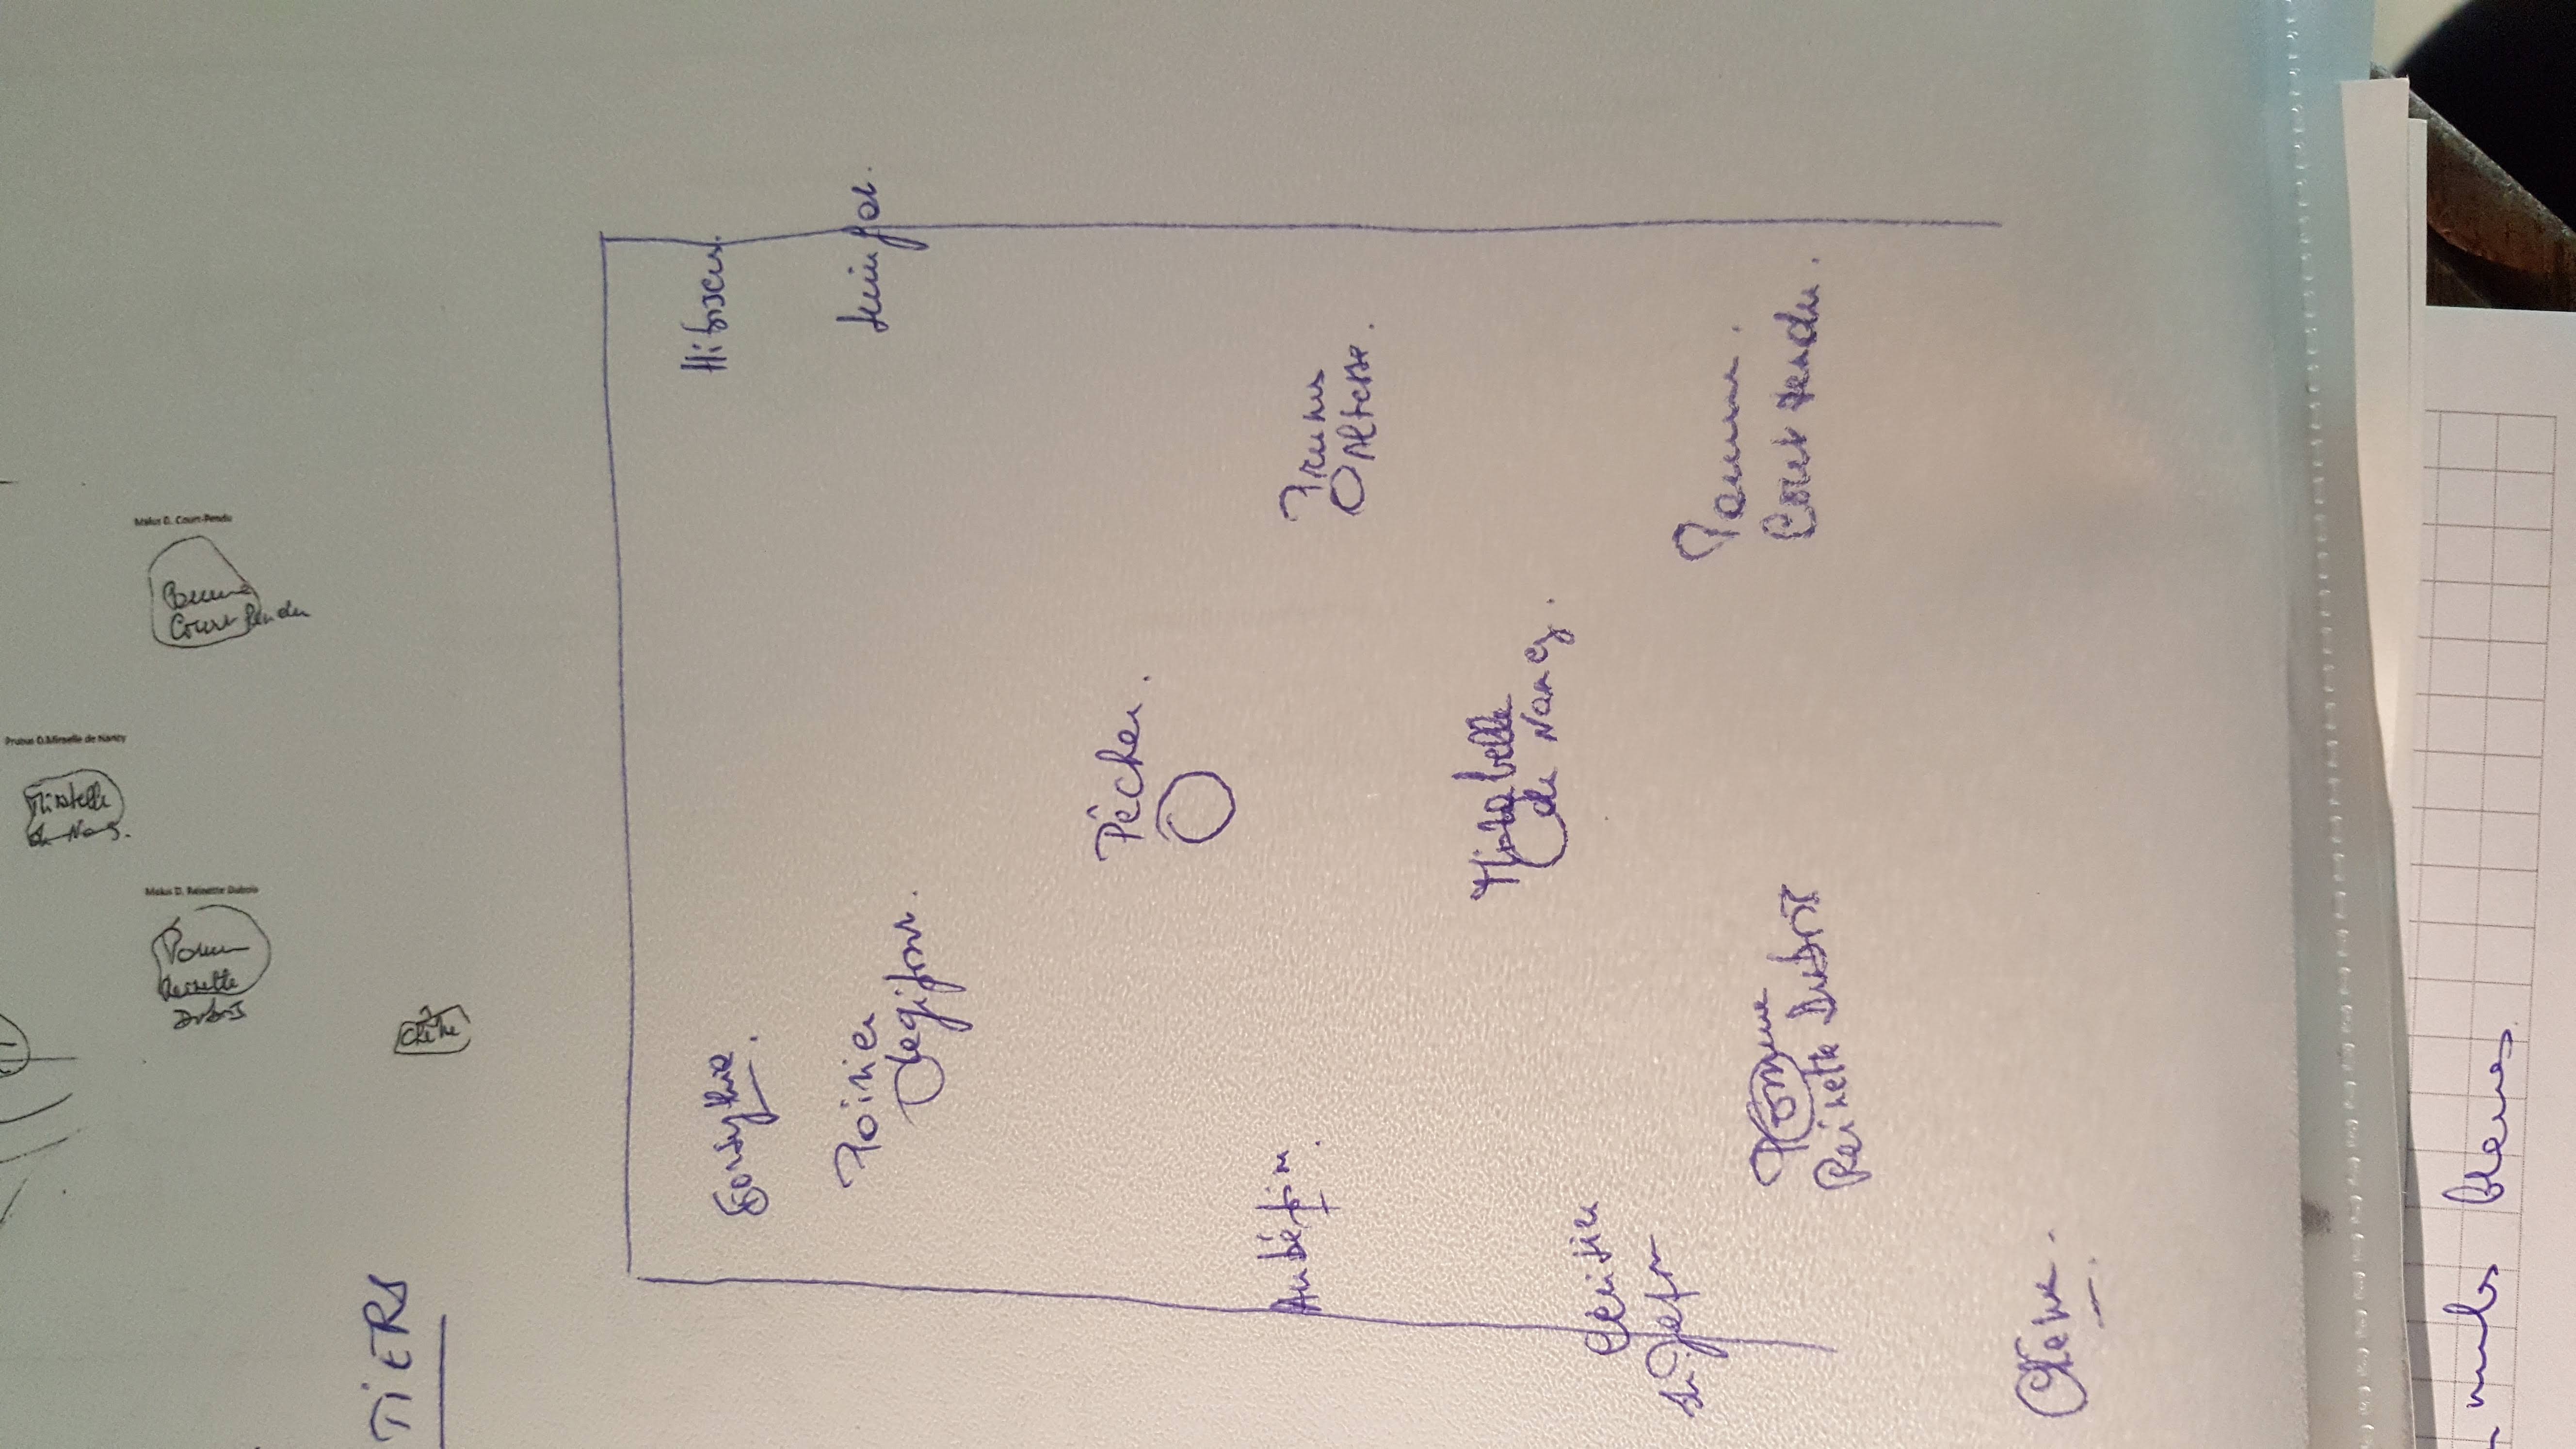 Malus D. Court-Pendu
Pomme
Court Pendu
Prunus D.Mirselle de Nancy
Mirabelle
de Nancy.
Malus D. Reinette Dubois
Pomme
Reinette
Dubois
Chêne
TIERS
Hibiscus.
Forsythia.
Poirier
Legipont.
Pêcher.
Prunus
Altesse.
Aubépin.
Mirabelle
de Nancy.
Cerisier
du Japon
Pomme.
Court Pendu.
Pomme
Reinette Dubois
Chêne.
bleues.